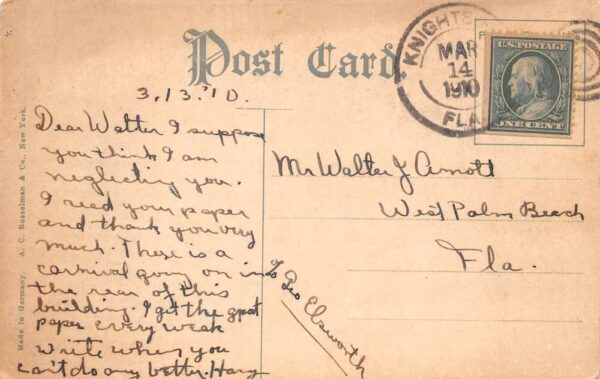 Post Card.
KNIGHTS
MAR
14
1910
FLA.
U.S. POSTAGE
ONE CENT
3,13.'10.
Dear Walter I suppose
you think I am
neglecting you.
I read your paper
and thank you very
much. There is a
carnival going on in
the rear of this
building. I get the
paper every weak
write when you
can't do any better. Harry
Mr Walter J Arnott
West Palm Beach
Fla.
Geo Elsworth
Made in Germany. A. C. Bosselman & Co., New York.